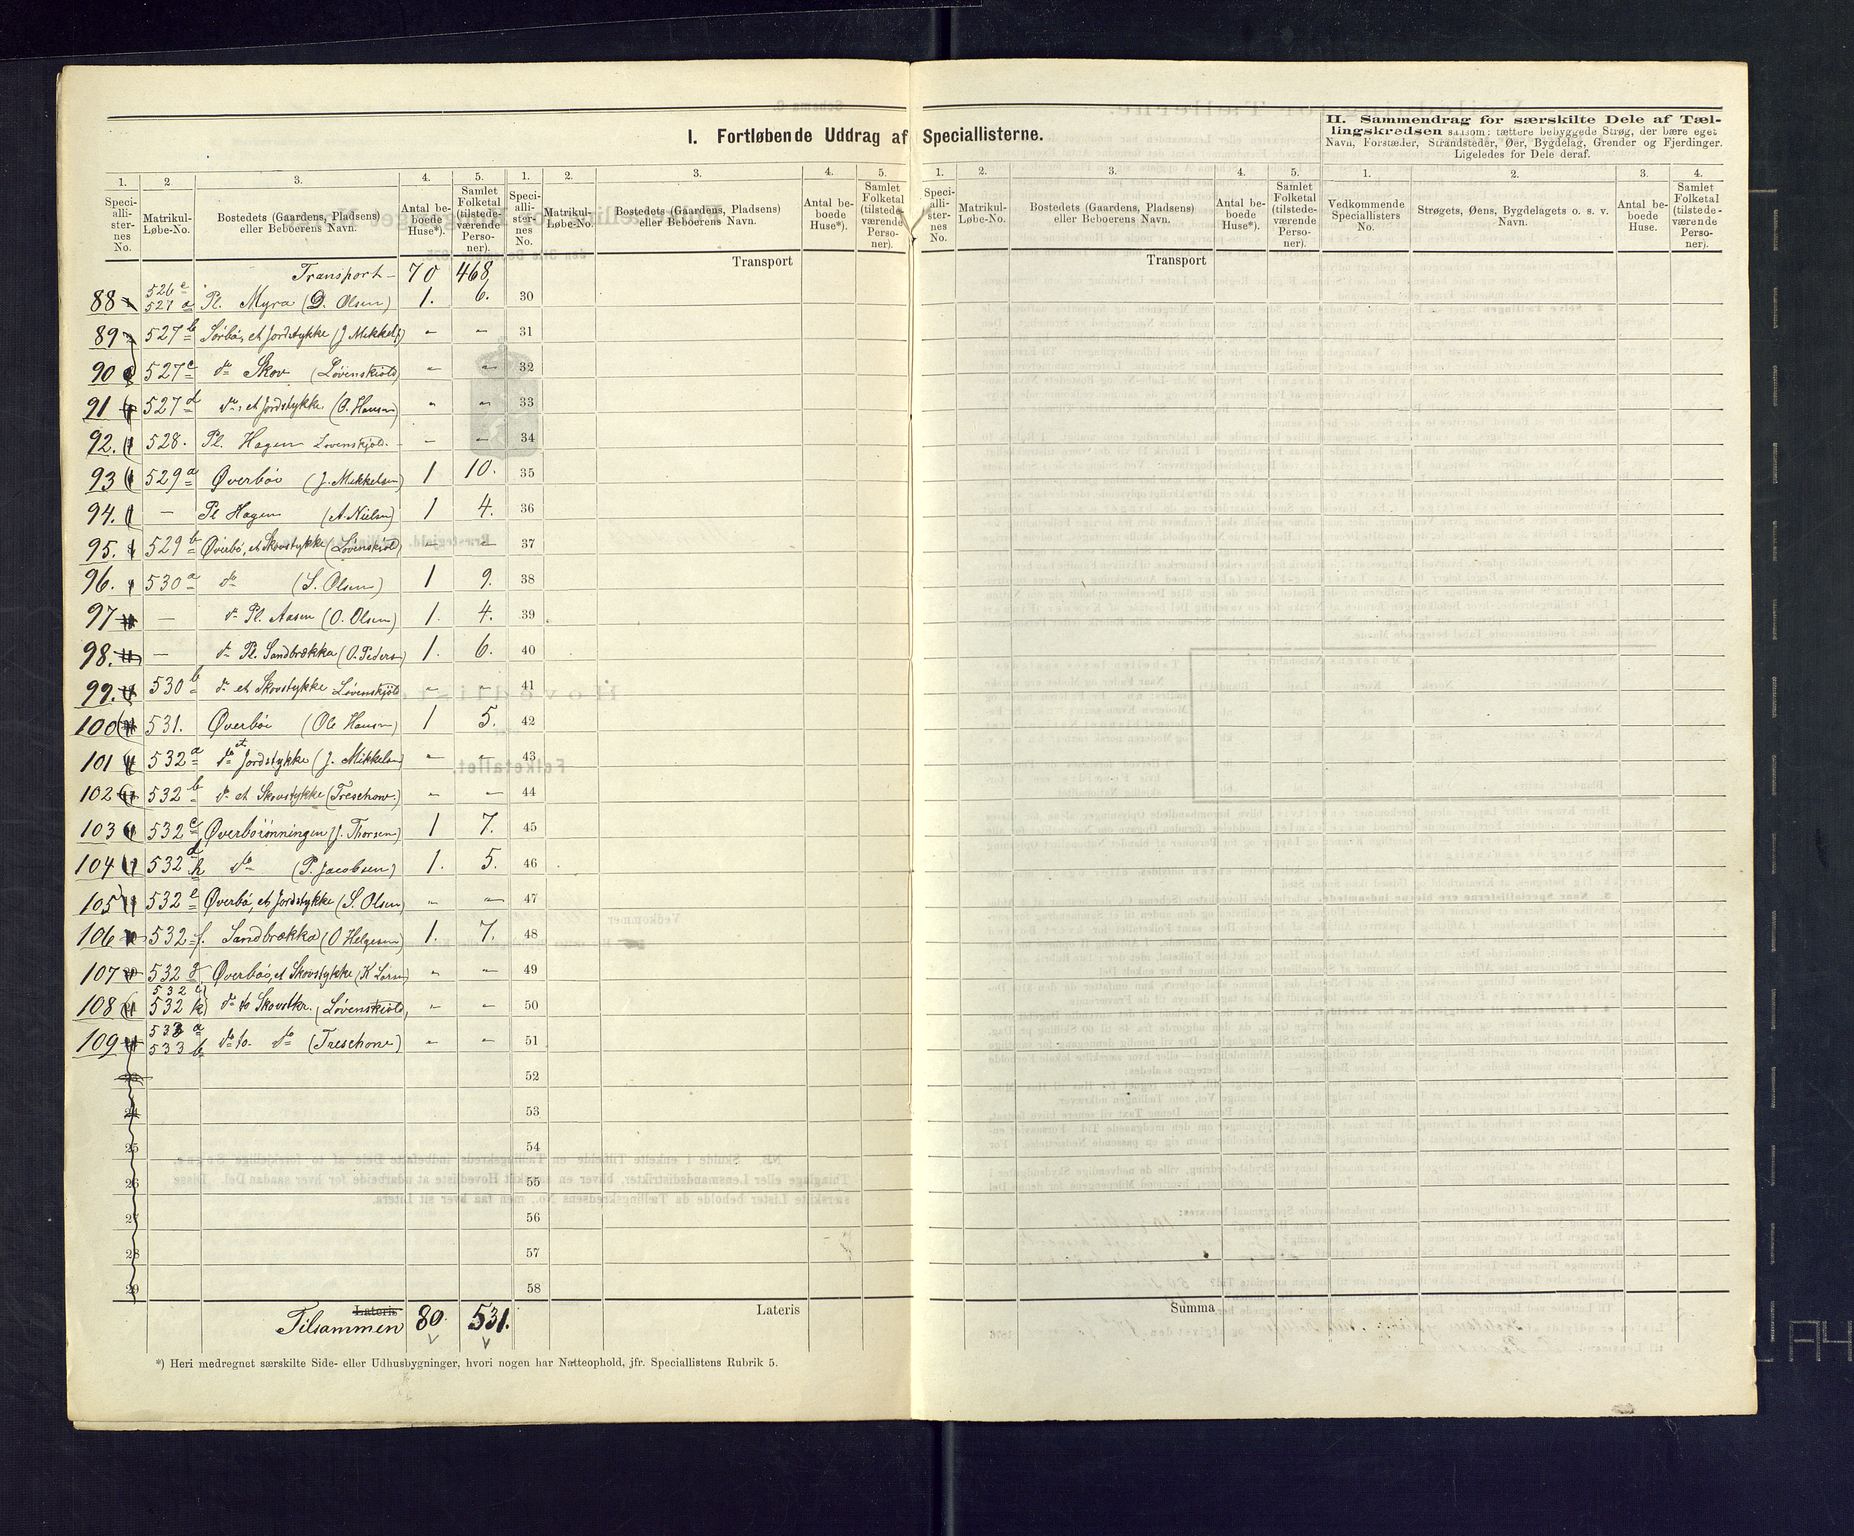 I. Fortløbende Uddrag af Speciallisterne.
II. Sammendrag for særskilte Dele af Tæl-
lingskredsen saasom: tættere bebyggede Strøg, der bære eget
Navn, Forstæder, Strandsteder, Øer, Bygdelag, Grender og Fjerdinger.
Ligeledes for Dele deraf.
1. 2 3. 4. 5. 1. 2. 3. 4. 5. 1. 2. 3. 4. 5. 1. 2. 3. 4.
Speciallisternes No. Matrikul-Løbe-No. Bostedets (Gaardens, Pladsens) eller Beboerens Navn. Antal beboede Huse*). Samlet Folketal (tilstedeværende Personer).
Speciallisternes No. Matrikul-Løbe-No. Bostedets (Gaardens, Pladsens) eller Beboerens Navn. Antal beboede Huse*). Samlet Folketal (tilstedeværende Personer).
Speciallisternes No. Matrikul-Løbe-No. Bostedets (Gaardens, Pladsens) eller Beboerens Navn. Antal beboede Huse*). Samlet Folketal (tilstedeværende Personer).
Vedkommende Speciallisters No. Strøgets, Øens, Bygdelagets o. s. v. Navn. Antal beboede Huse. Samlet Folketal (tilstedeværende Personer).
Transport - 70 468 Transport Transport
88 526 c 527 a Pl. Myra (D. Olsen) 1. 6. 30
89 527 b Sørbö, et Jordstykke (J. Mikkels) - - 31
90 527 c do Skov (Løvenskiold) - - 32
91 527 d do, et Jordstykke (O. Hansen) - - 33
92. 528. Pl. Hagen Løvenskjold. - - 34
93 529 a Øverböi (J. Mikkelsen) 1 10. 35
94. - Pl Hagen (A. Nielsen) 1 4. 36
95. 529 b Øverbö, et Skovstykke (Løvenskiold) - - 37
96. 530 a do (S. Olsen) 1 9. 38
97 - do Pl. Aasen (O. Olsen) 1. 4. 39
98. - do Pl. Sandbrækka (O. Peders) 1. 6. 40
99. 530 b do et Skovstykke Løvenskjold - - 41
100 531. Øverböi (Ole Hansen) 1 5. 42
101 532 a do et Jordstykke (J. Mikkelsen) - - 43
102 532 b do et Skovstykke (Treschow.) - - 44
103 532 c Øverbörönningen (J. Thorsen) 1 7. 45
104 532 d h do (P. Jacobsen) 1. 5. 46
105 532 e Øverbö, et Jordstykke (S. Olsen) - - 47
106 532 f. Sandbrækka (O Helgesen) 1. 7. 48
107 532 g Øverböi, et Skovstykke (K Larsen) - - 49
108 532 532 k do to Skovstkr. (Løvenskiold) - - 50
109 533 a 533 b do to do (Treschow) - - 51
52
24 53
25 54
26 55
27 56
28 57
29 58
Lateris Tilsammen 80. 531. Lateris Summa
*) Heri medregnet særskilte Side- eller Udhusbygninger, hvori nogen har Natteophold, jfr. Speciallistens Rubrik 5.
A4